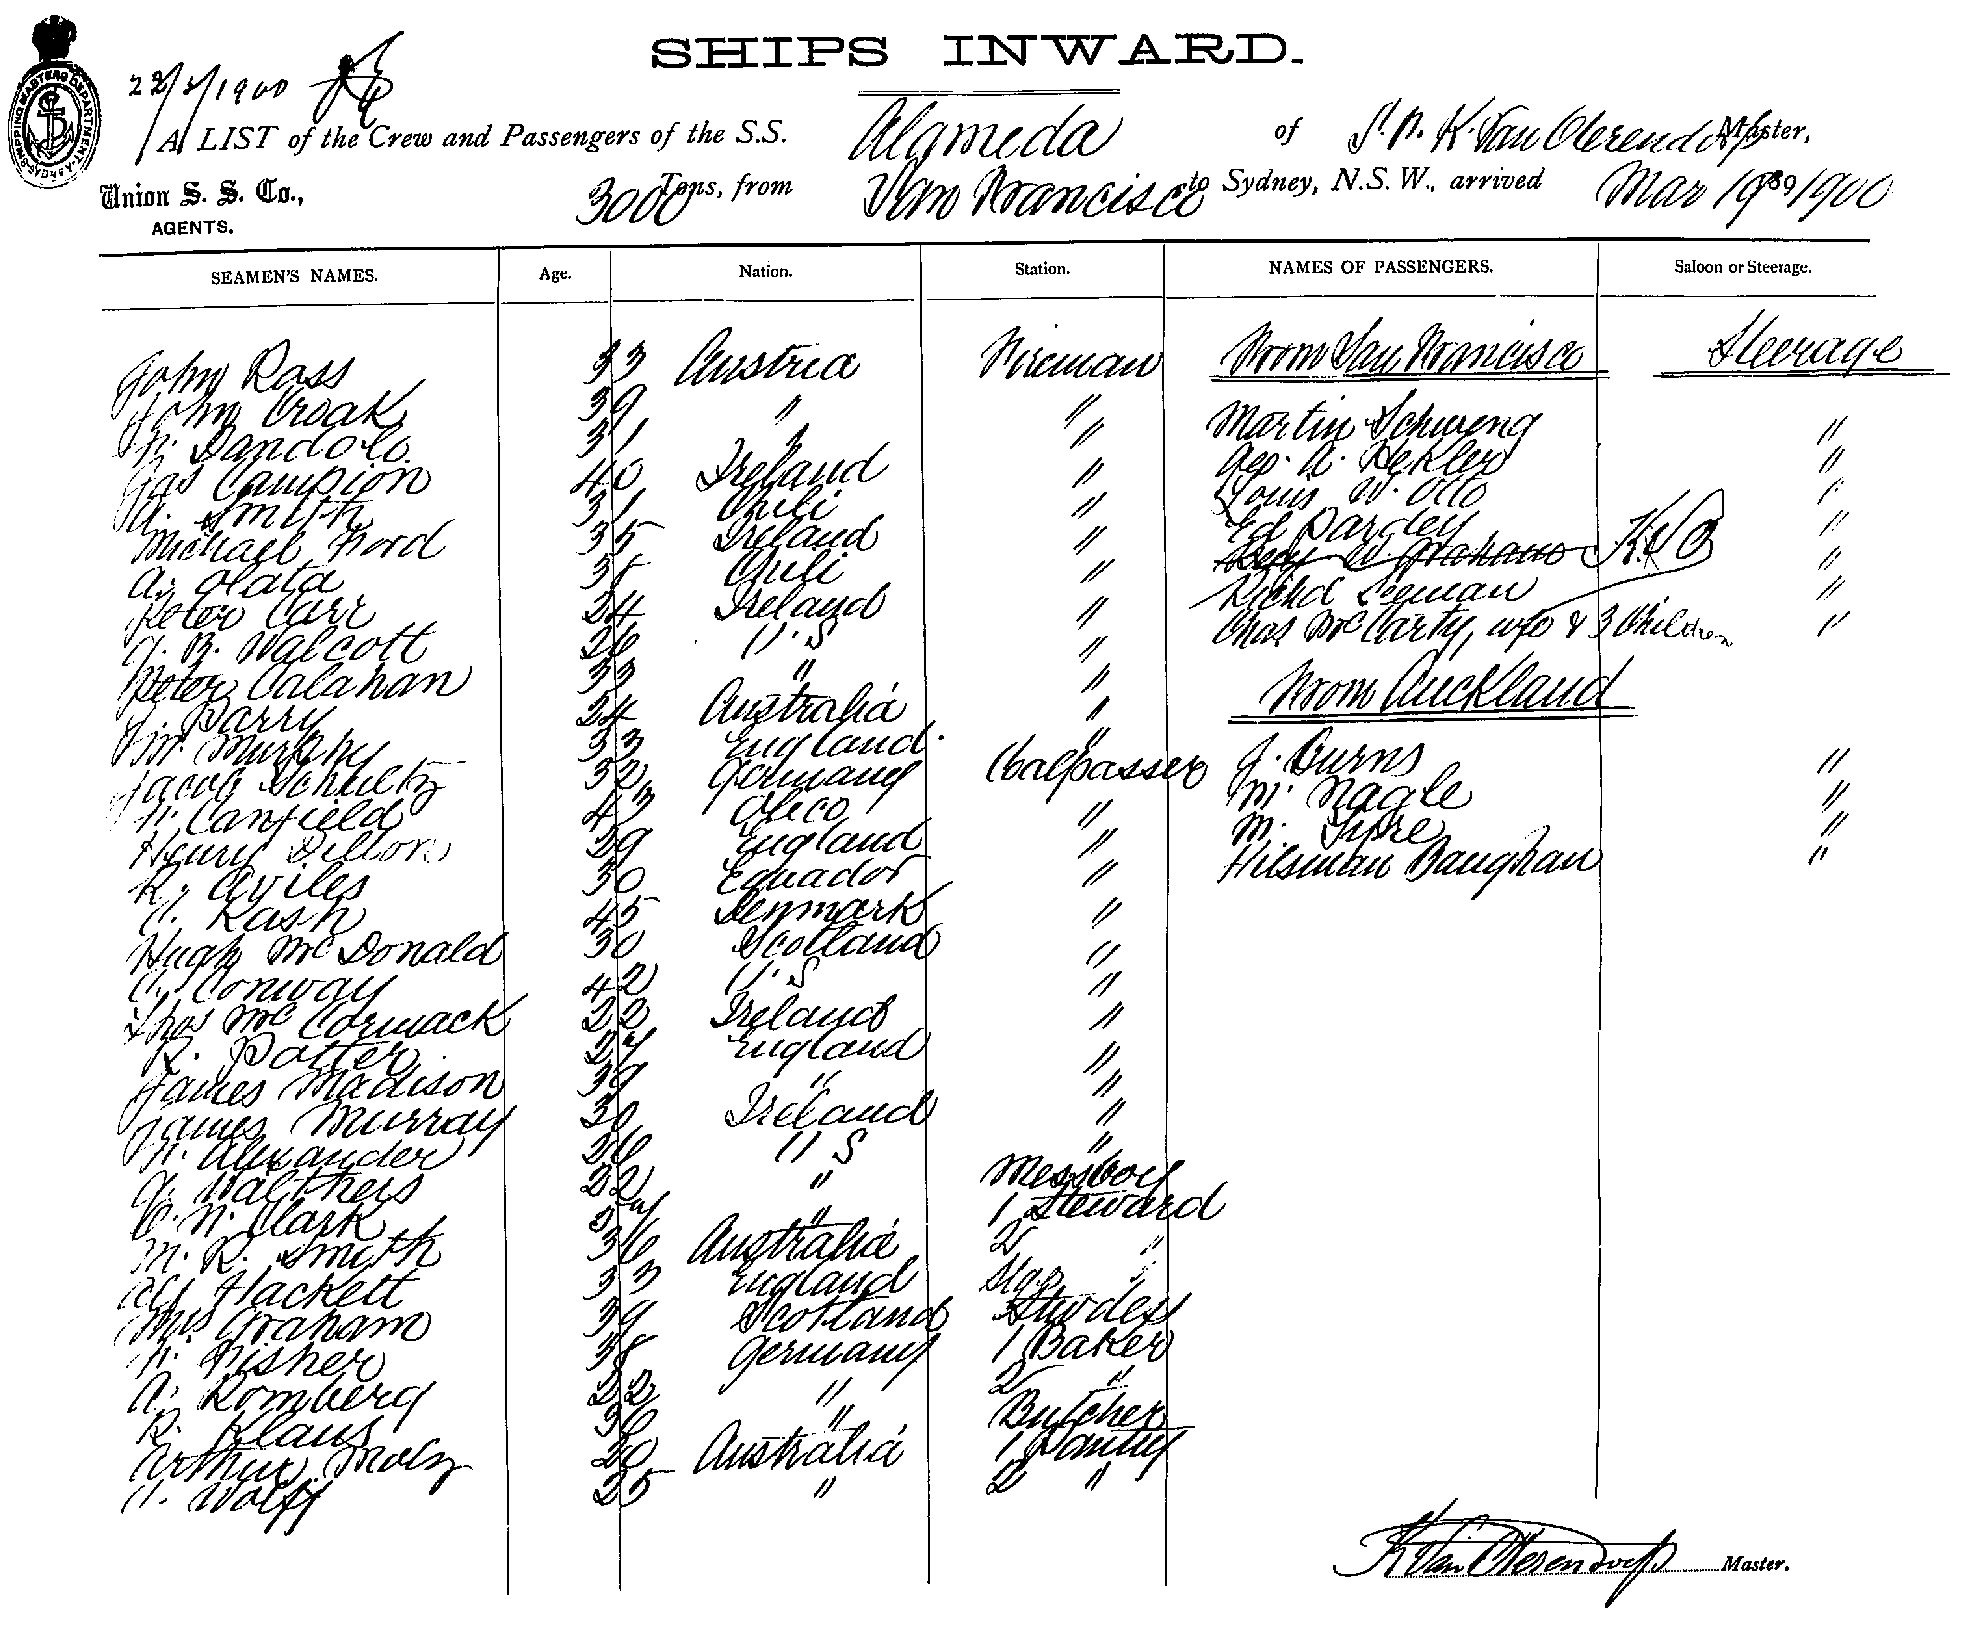 SHIPS INWARD.
22/3/1900
A LIST of the Crew and Passengers of the S.S. Alameda of S.F. K. Van Oterendorp Master,
Union S. S. Co., 3000 Tons, from San Francisco to Sydney, N.S.W., arrived Mar 19 1900
AGENTS.
SEAMEN'S NAMES. Age. Nation. Station. NAMES OF PASSENGERS. Saloon or Steerage.
John Ross 33 Austria Fireman From San Francisco Steerage
John Croak 39 " " Martin Schweng "
F. Dandolo 31 " " Geo. A. Hekler "
Jas Campion 40 Ireland " Louis W. Otto "
A. Smith 31 Chili " Ed Pardey "
Michael Ford 35 Ireland " Graham "
A. Olata 35 Chili " Richd Leeman "
Peter Carr 24 Ireland " Chas McCarty, wfe & 3 Children "
J. B. Walcott 26 U.S "
Peter Calahan 33 " " From Auckland
J. Parry 24 Australia "
M. Murphy 33 England " J. Burns "
Jacob Schultz 32 Germany Coalpasser M. Nagle "
F. Canfield 43 " M. "
Henry Dillon 29 England " Hilsman Baughan "
R. Aviles 30 Equador "
C. Rash 45 Denmark "
Hugh McDonald 30 Scotland "
C. Conway 42 U.S "
Thos McCormack 22 Ireland "
R. Potter 27 England "
James Madison 39 " "
James Murray 30 Ireland "
F. Alexander 26 U S "
J. Walthers 22 " Messboy
C. F. Clark " 1 Steward
M. R. Smith 36 Australia 2 "
Alf Hackett 33 England Stge "
Mrs Graham 39 Scotland Stwdess
F. Fisher 38 Germany 1 Baker
A. Romberg 22 " 2 "
R. Klaus 36 " Butcher
Arthur 20 Australia 1 Pantry
A. Wolff 25 " 2 "
K Van Oterendorp Master.